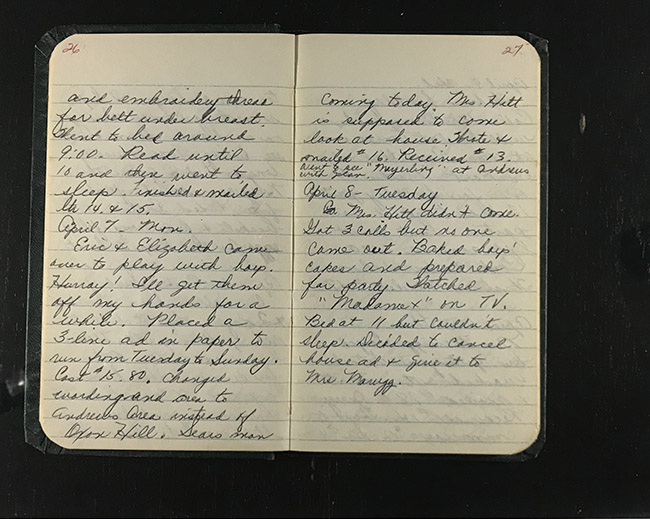 26
and embroidery thread
for belt under breast.
Went to bed around
9:00. Read until
10 and then went to
sleep. Finished & mailed
ltr 14 & 15.
April 7 - Mon.
Eric & Elizabeth came
over to play with boys.
Hurray! I'll get them
off my hands for a
while. Placed a
3-line ad in paper to
run from Tuesday to Sunday.
Cost $15.80. Changed
wording and area to
Andrews Area instead of
Oxon Hill. Sears man
27
coming today. Mrs. Hitt
is supposed to come
look at house. Wrote &
mailed #16. Received #13.
Went to see "Mayerling" at Andrews
with Jean.
April 8 - Tuesday
Mrs. Hitt didn't come.
Got 3 calls but no one
came out. Baked boys'
cakes and prepared
for party. Watched
"Madame X" on TV.
Bed at 11 but couldn't
sleep. Decided to cancel
house ad & give it to
Mrs.